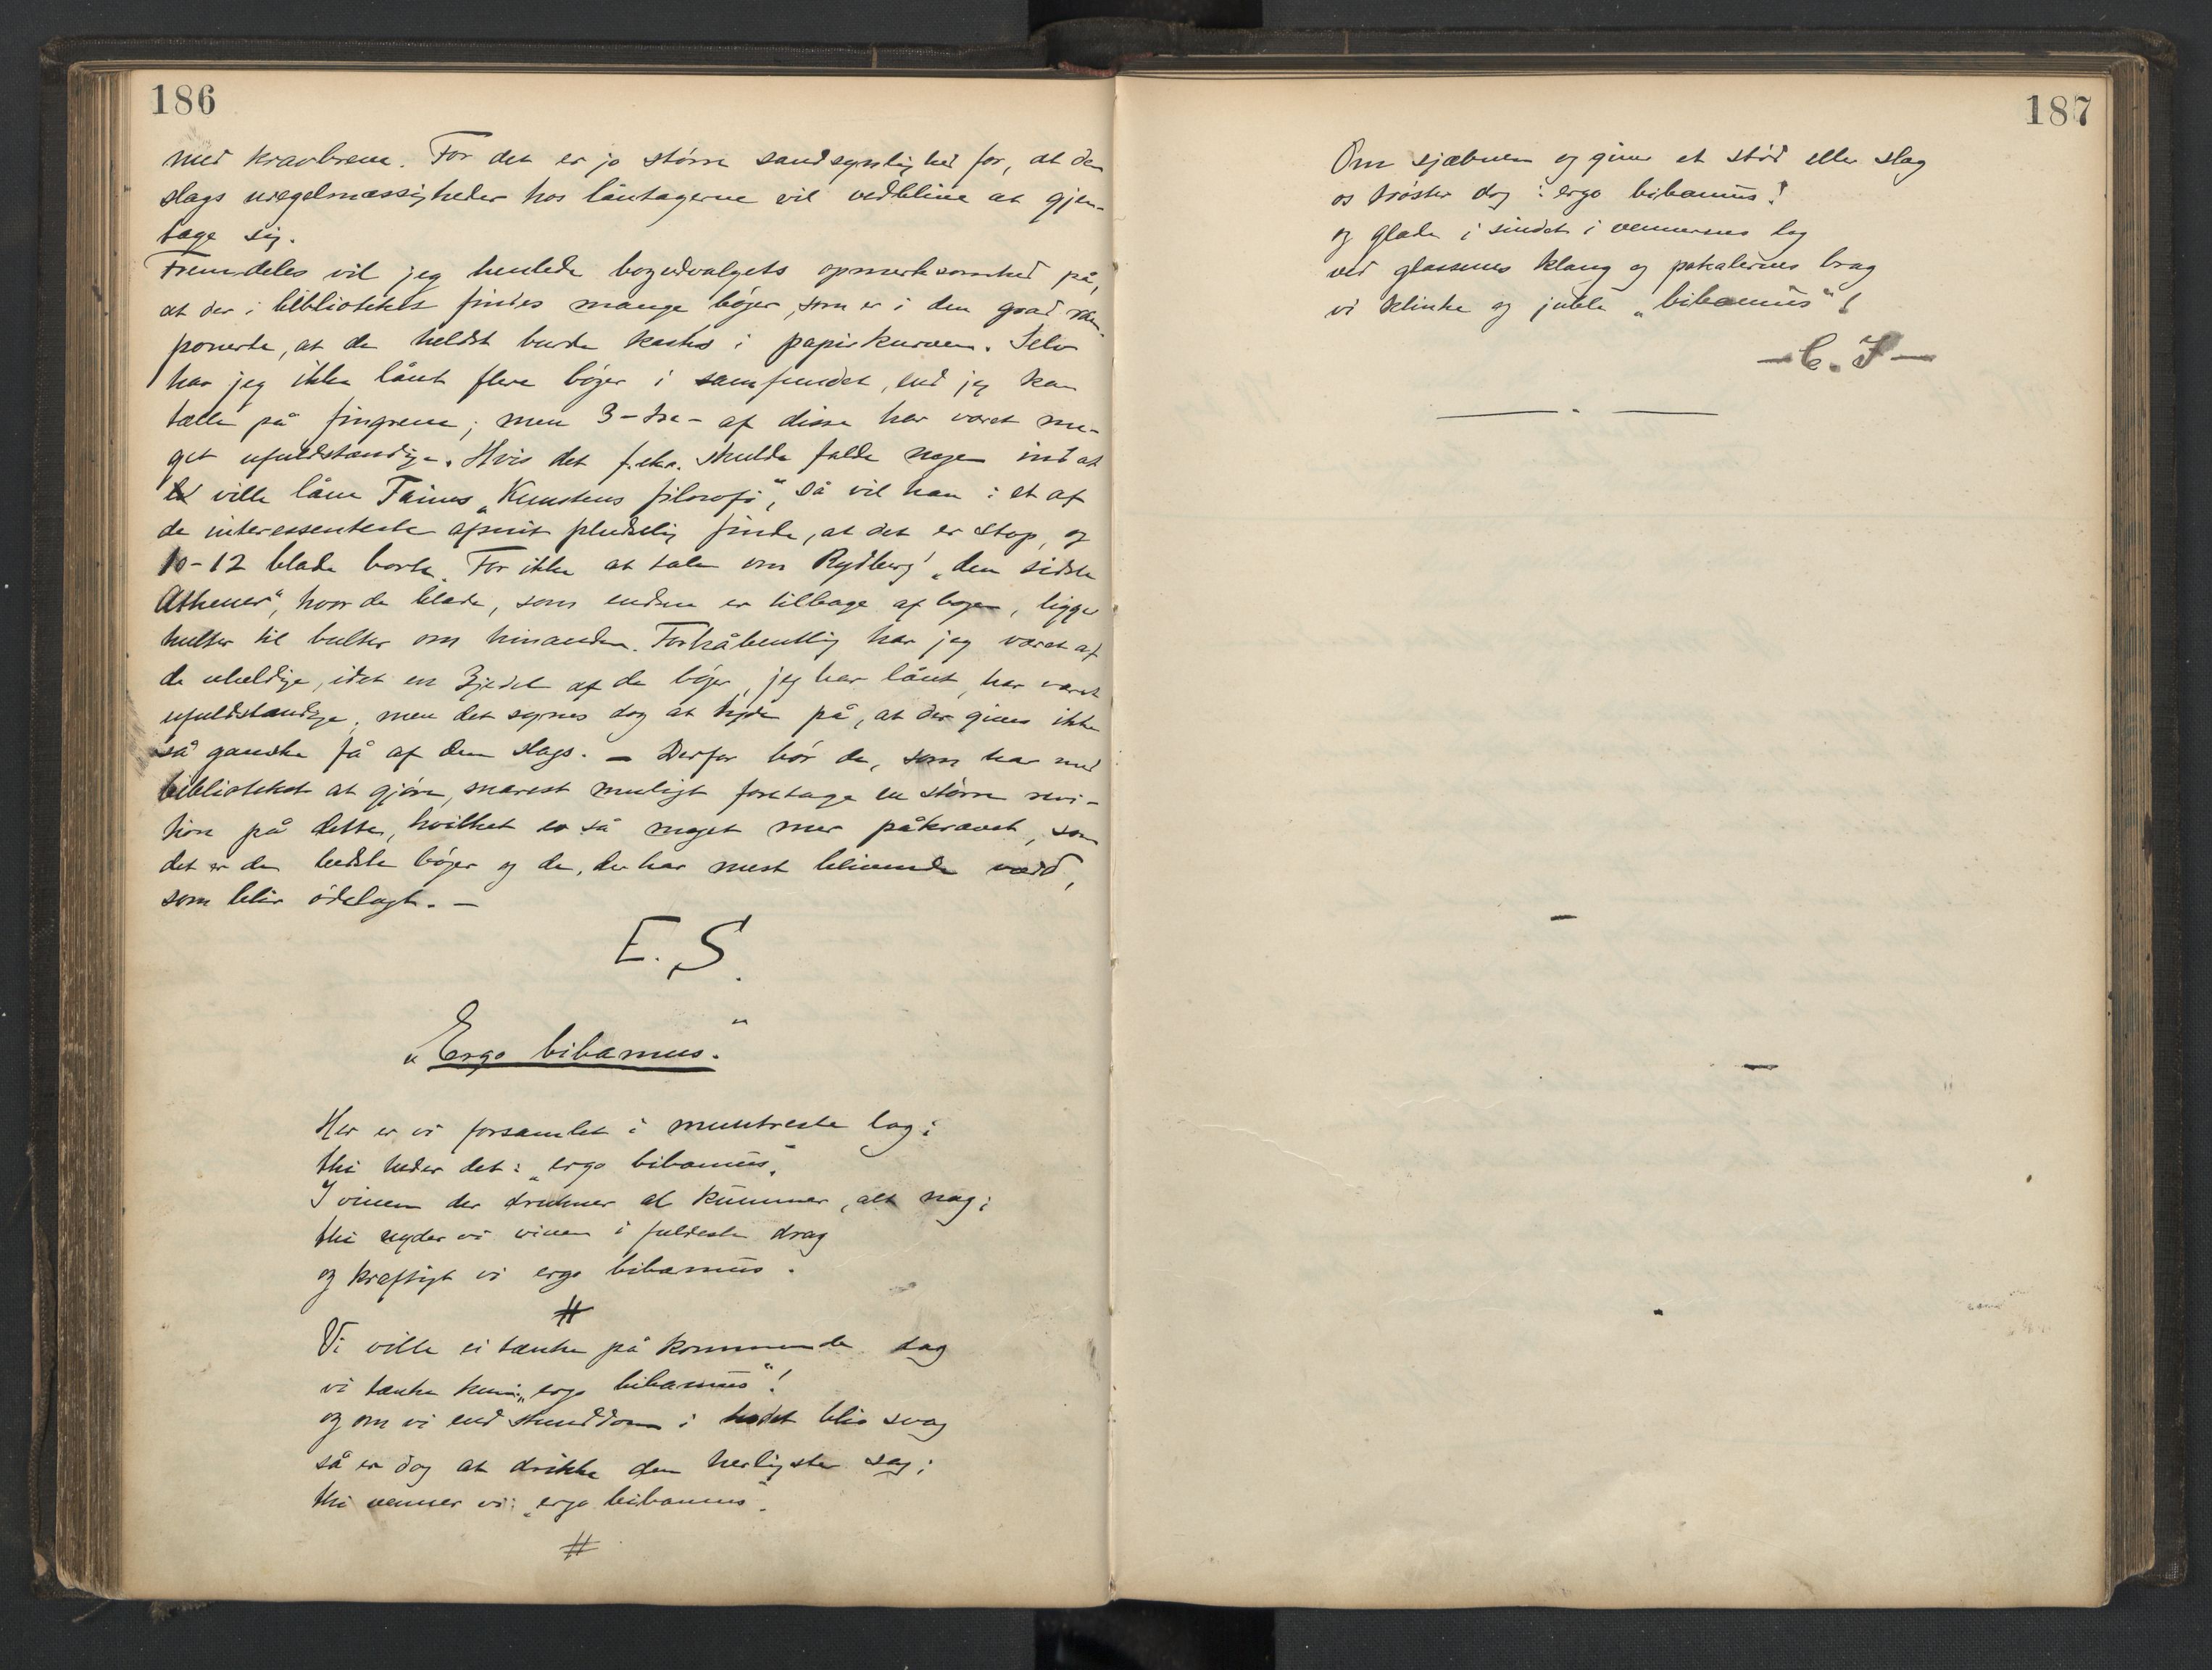 186
med kravbrene. For det er jo større sandsynlighed for, at den
slags uregelmæssigheder hos låntagerne vil vedblive at gjen-
tage sig.
Fremdeles vil jeg henlede bogudvalgets opmerksomhed på,
at der i bibliotheket findes mange bøger, som er i den grad ram-
ponerte, at de heldst burde kastes i papirkurven. Selv
har jeg ikke lånt flere bøger i samfundet, end jeg kan
tælle på fingrene; men 3-tre- af disse har været me-
get ufuldstændige. Hvis det f.eks. skulde falde nogen ind at
ville låne Taines „Kunstens filosofi“, så vil han i et af
de interessenteste afsnit pludselig finde, at det er stop, og
10-12 blade borte. For ikke at tale om Rydberg' „den sidste
Athener“, hvor de blade, som endnu er tilbage af bogen, ligger
hulter til bulter om hinanden. Forhåbentlig har jeg været af
de uheldige, idet en 3jedel af de bøger, jeg har lånt, har været
ufuldstændige, men det synes dog at tyde på, at der gives ikke
så ganske få af den slags. – Derfor bør de, som har med
bibliotheket at gjøre, snarest muligt foretage en større revi-
sion på dette, hvilket er så meget mer påkrævet, som
det er de bedste bøger og de, der har mest blivende værd,
som blir ødelagt. –
E. S.
„Ergo bibamus.“
Her er vi forsamlet i muntreste lag;
thi heder det: „ergo bibamus“.
I vinen der drukner al kummer, alt nag;
thi nyder vi vinen i fuldeste drag
og kræftigt vi ergo bibamus.
#
Vi ville ei tænke på kommende dag
vi tænke kun: „ergo bibamus“!
og om vi end stunddom i hodet blir svag
så er dog at drikke den herligste sag;
thi venner vi: „ergo bibamus“.
#
187
Om sjæbnen og giver et stød eller slag
os trøster dog: ergo bibamus!
og glade i sindet i vennernes lag
ved glassenes klang og pokalernes brag
vi klinke og juble „bibamus“!
– C. F –